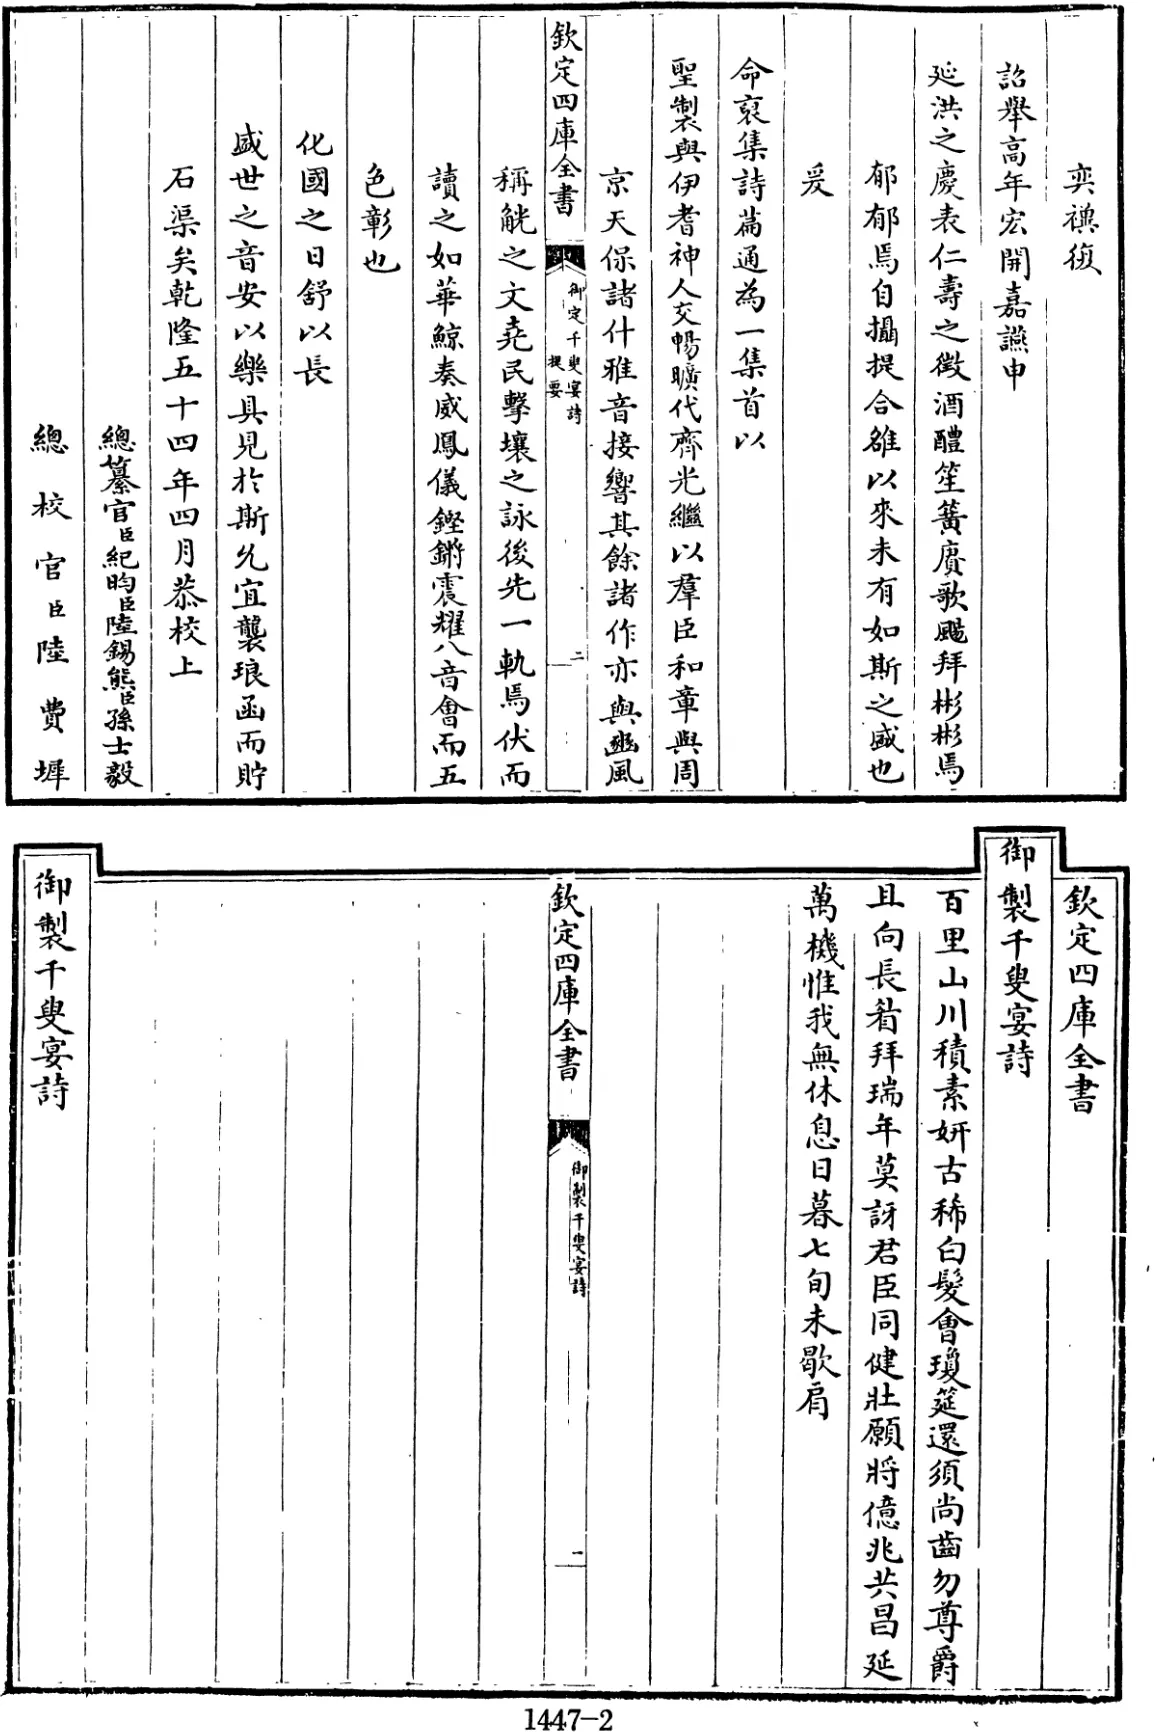 奕禩復
詔舉高年宏開嘉讌申
延洪之慶表仁壽之徵酒醴笙簧賡歌颺拜彬彬焉
郁郁焉自攝提合雒以來未有如斯之盛也
爰
命裒集詩篇通為一集首以
聖製與伊耆神人交暢曠代齊光繼以羣臣和章與周
京天保諸什雅音接響其餘諸作亦與豳風
欽定四庫全書
御定千叟宴詩
提要
二
稱觥之文堯民擊壤之詠後先一軌焉伏而
讀之如華鯨奏威鳳儀鏗鏘震耀八音會而五
色彰也
化國之日舒以長
盛世之音安以樂具見於斯允宜襲琅函而貯
石渠矣乾隆五十四年四月恭校上
總纂官臣紀昀臣陸錫熊臣孫士毅
總校官臣陸費墀
欽定四庫全書
御製千叟宴詩
百里山川積素妍古稀白髮會瓊筵還須尚齒勿尊爵
且向長眉拜瑞年莫訝君臣同健壯願將億兆共昌延
萬機惟我無休息日暮七旬未歇肩
欽定四庫全書
御製千叟宴詩
一
御製千叟宴詩
1447-2